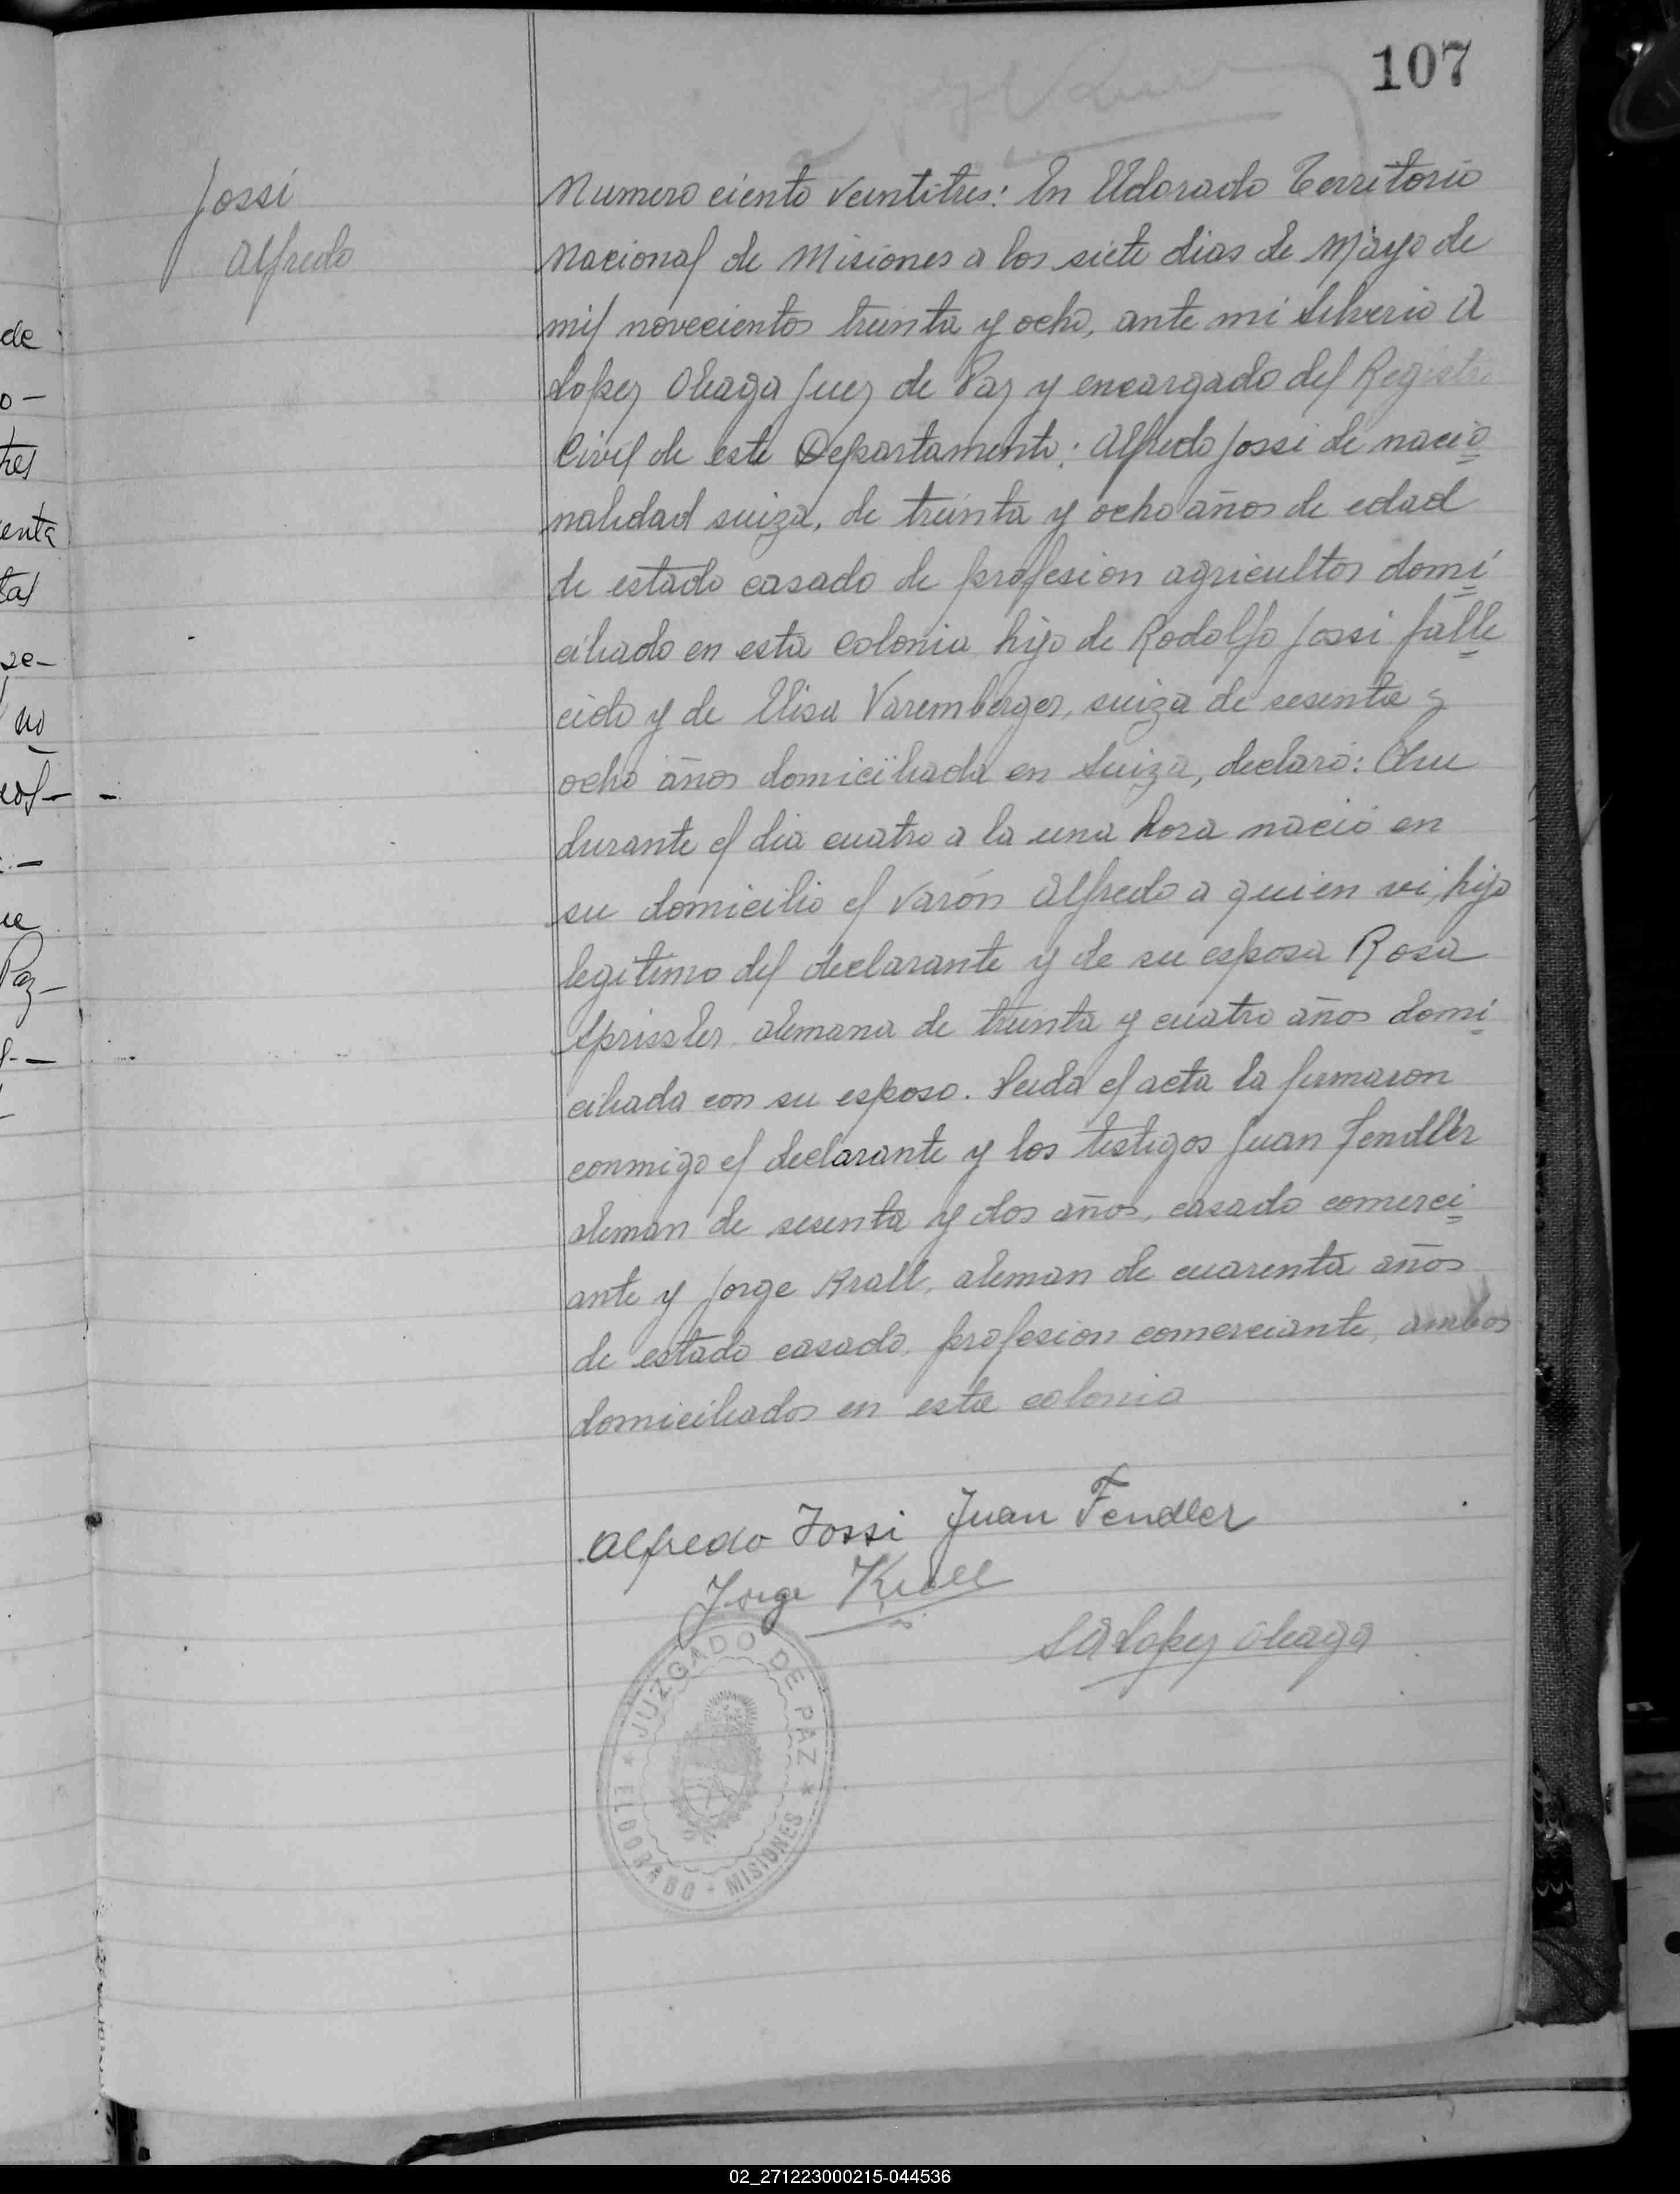 107
Jossi
Alfredo
Numero ciento veintitres: En Eldorado Territorio
Nacional de Misiones a los siete dias de Mayo de
mil novecientos treinta y ocho, ante mi Silverio A
Lopez Oleaga Juez de Paz y encargado del Registro
Civil de este Departamento: Alfredo Jossi de nacio
nalidad suiza, de treinta y ocho años de edad
de estado casado de profesion agricultor domi
ciliado en esta colonia hijo de Rodolfo Jossi falle
cido y de Elisa Varemberger, suiza de sesenta y
ocho años domiciliada en Suiza, declaró: Que
durante el dia cuatro a la una hora nació en
su domicilio el varón Alfredo a quien vi, hijo
legitimo del declarante y de su esposa Rosa
Sprissler alemana de treinta y cuatro años domi
ciliada con su esposo. Leida el acta la firmaron
conmigo el declarante y los testigos Juan Fendler
aleman de sesenta y dos años, casado comerci
ante y Jorge Krall, aleman de cuarenta años
de estado casado, profesion comerciante, ambos
domiciliados en esta colonia
Alfredo Jossi Juan Fendler
Jorge Krall
SA Lopez Oleaga
JUZGADO DE PAZ
ELDORADO - MISIONES
de
o-
tres
enta
tas
se-
no
ue
Paz-
02_271223000215-044536